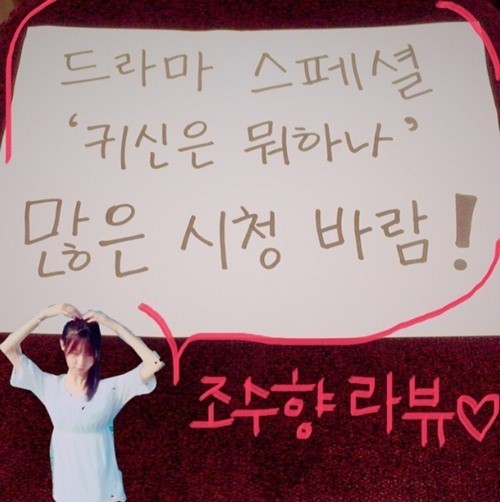 드라마 스페셜
‘귀신은 뭐하나’
많은 시청 바람!
조수향 라뷰♡